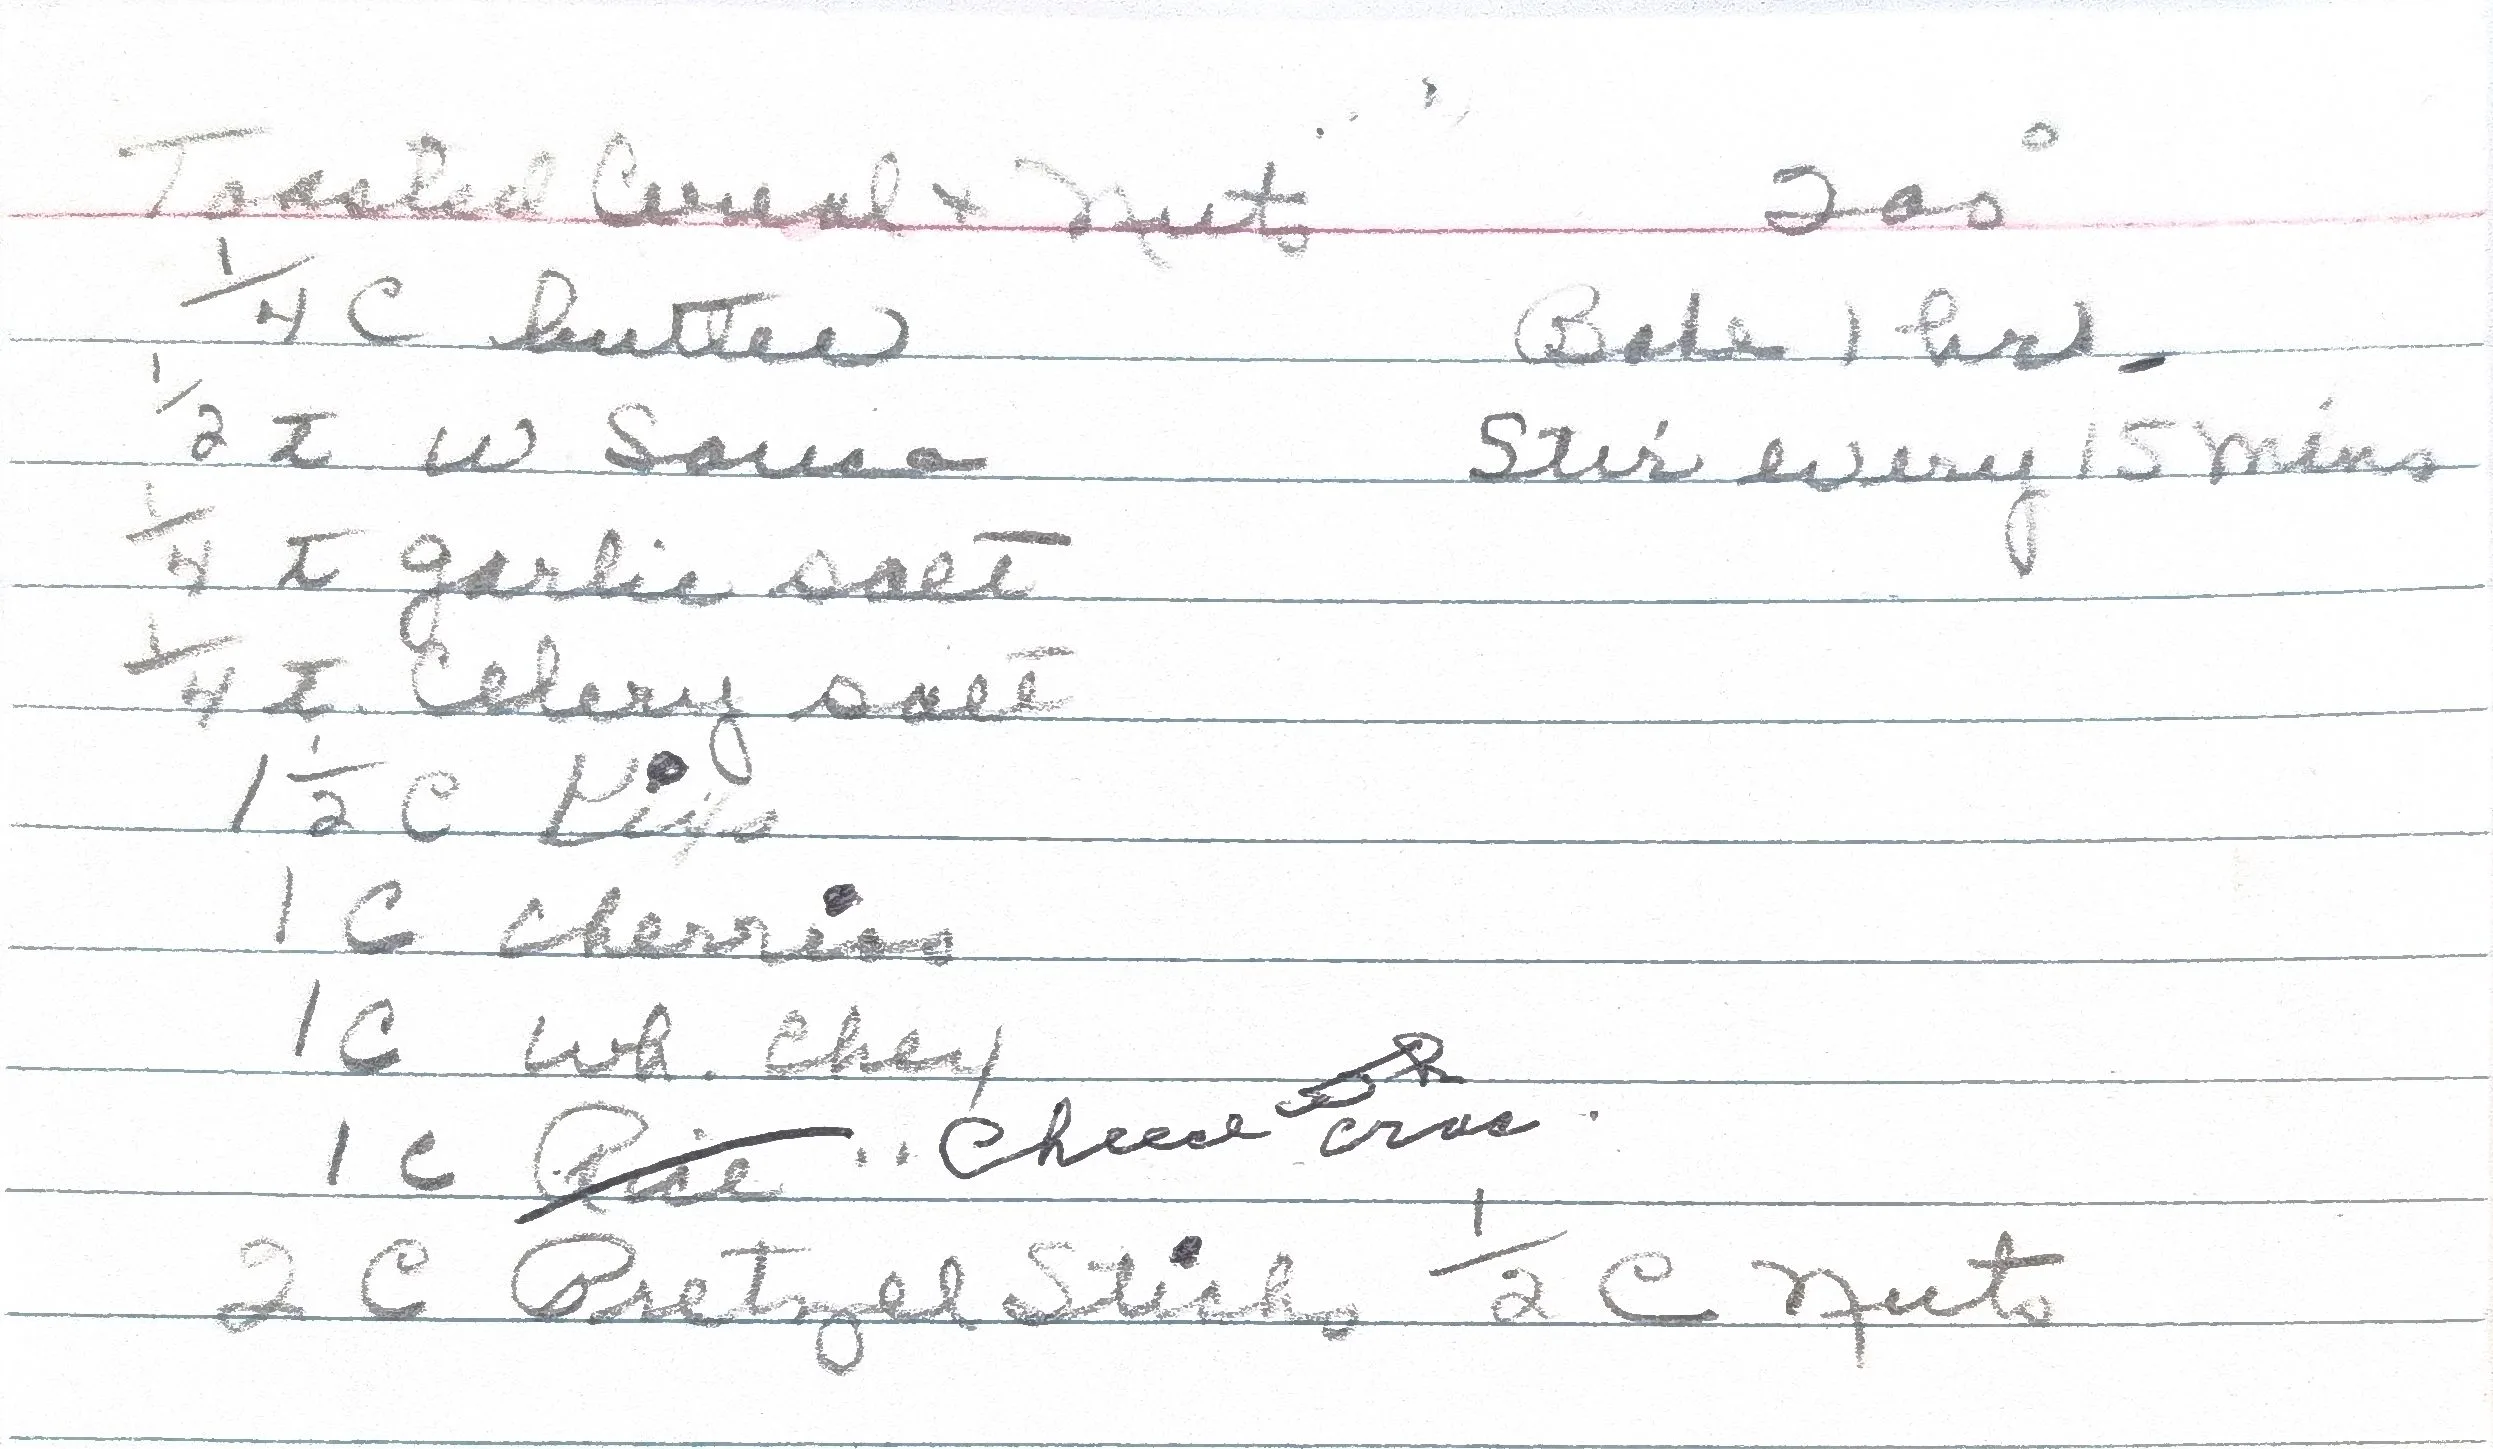 Toasted Cereal + Nuts 200°
1/4 C butter Bake 1 hr.
1/2 t W Sauce Stir every 15 mins
1/4 t garlic salt
1/4 t. Celery salt
1 1/2 C Kix
1 C cherrios
1 C Wh. Chex
1 C Rice " Cheese crac.
2 C Pretzel Sticks 1/2 C Nuts